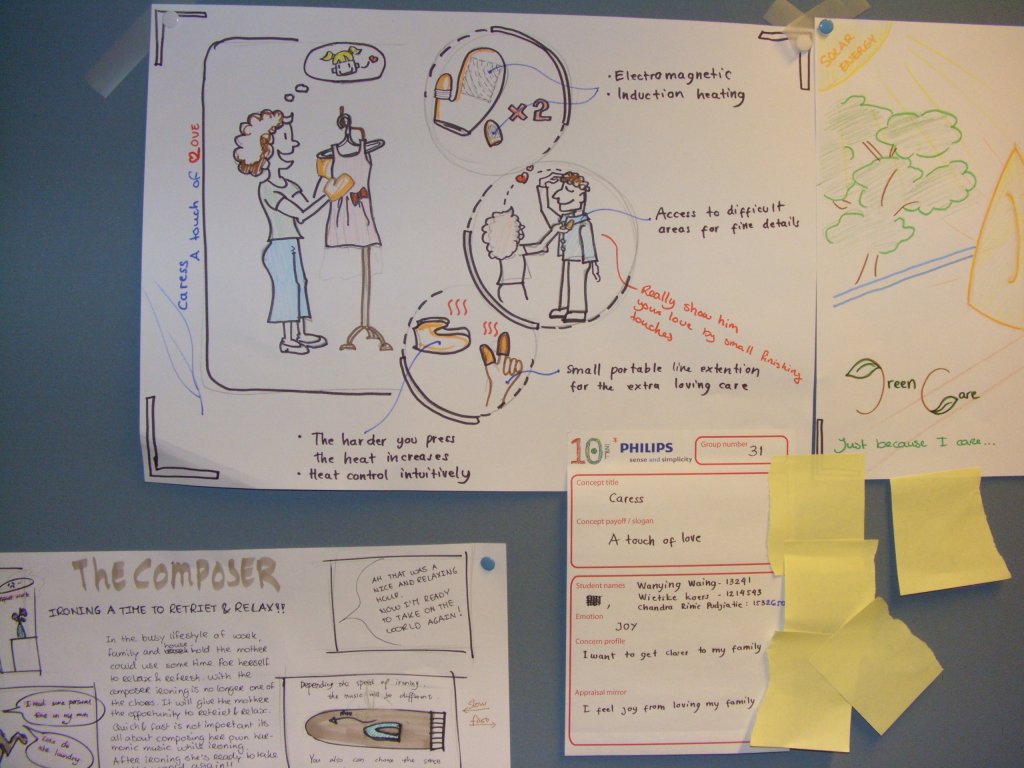 Caress
A touch of LOVE
x2
• Electromagnetic
• Induction heating
Access to difficult
areas for fine details
Really show him
your love by small finishing
touches
Small portable line extention
for the extra loving care
• The harder you press
the heat increases
• Heat control intuitively
SOLAR
ENERGY
Green Care
Just because I care...
10
PHILIPS
sense and simplicity
Group number 31
Concept title
Caress
Concept payoff / slogan
A touch of love
Student names Wanying Waing - 13241
Wietske Koers - 1214593
Chandra Rinie Pudjiatie : 153265
Emotion
JOY
Concern profile
I want to get closer to my family
Appraisal mirror
I feel joy from loving my family
THE COMPOSER
IRONING A TIME TO RETRIET & RELAX!!
In the busy lifestyle of work,
family and house hold the mother
could use some time for herself
to relax & refresh. With the
composer ironing is no longer one of
the chores. It will give the mother
the opportunity to retriet & relax.
Quich & fast is not important its
all about composing her own har-
monic music while ironing.
After ironing she's ready to take
AH THAT WAS A
NICE AND RELAXING
HOUR.
NOW I'M READY
TO TAKE ON THE
WORLD AGAIN!
I need some personal
time on my own
Depending the speed of ironing...
the music will be different
slow
fast
You also can choose the